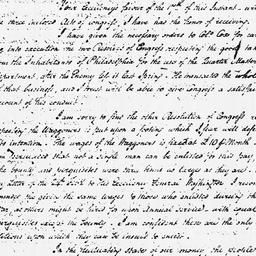 Your Excellency's favor of the 17th of this Instant, with
the three inclosed Acts of Congress, I have had the honor of receiving.
I have given the necessary orders to Col. Cox for carry-
ing into execution the two Resolves of Congress respecting the goods taken
from the Inhabitants of Philadelphia for the use of the Quarter Master
Department, after the Enemy left it last Spring. He transacted the whole
of that business, and I trust will be able to give Congress a satisfac
account of his conduct.
I am sorry to find the other Resolution of Congress re
specting the Waggoners is put upon a footing which I fear will defeat
its intention. The wages of the Waggoners is fixed at £10 Month
am persuaded that not a single man can be enlisted for this pay,
the bounty and perquisites were ten times as large as they are.
my Letter of the to His Excellency General Washington I recom
mended the giving the same wages to those who enlisted during the
War, as others might be hired for upon Annual Service with
perquisites and the Bounty. I am confident these are the only
tations upon which they can be induced to enlist.
In the fluctuating state of our money, the people